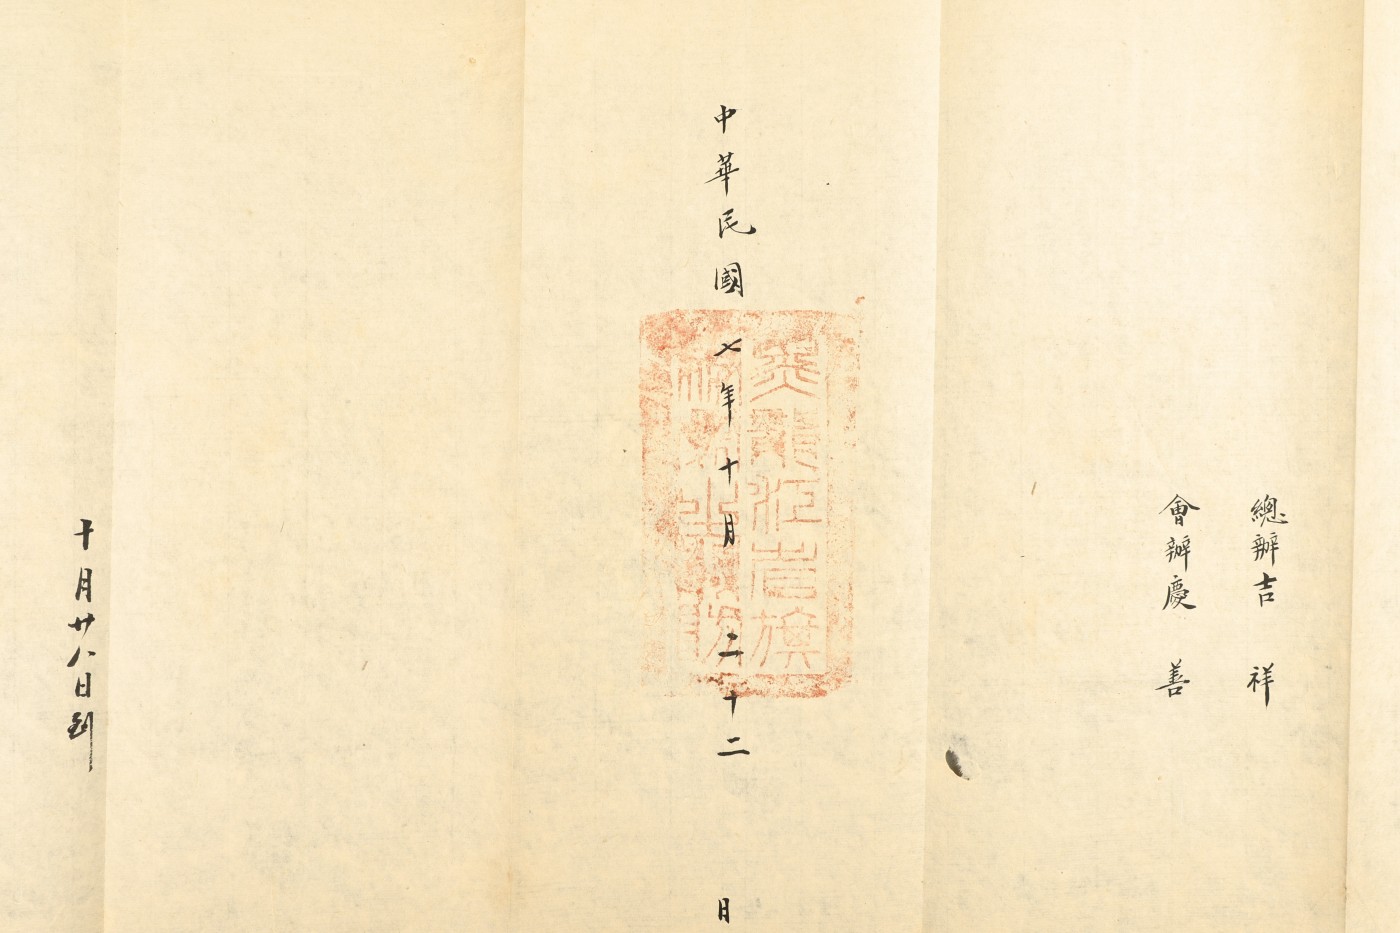 總辦吉祥
會辦慶善
黑龍江省旗
中華民國七年十月二十二日
十月廿八日到